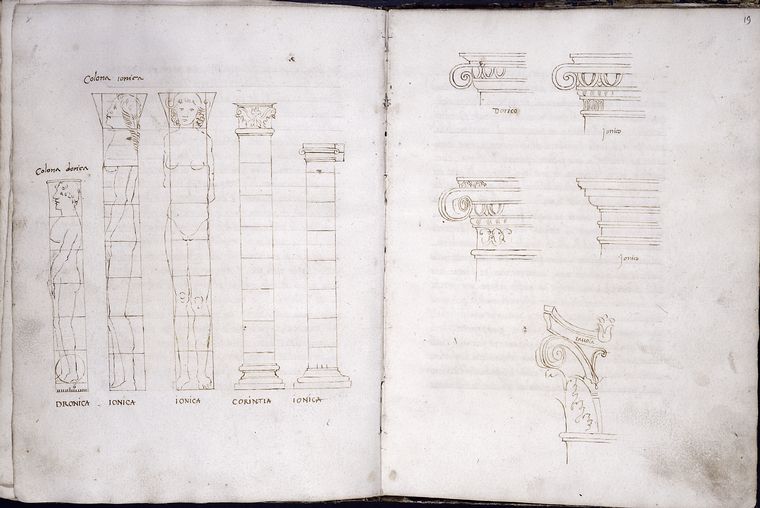 Colona ionica
Colona dorica
DRONICA IONICA IONICA CORINTIA IONICA
19
Dorico
Jonico
Jonico